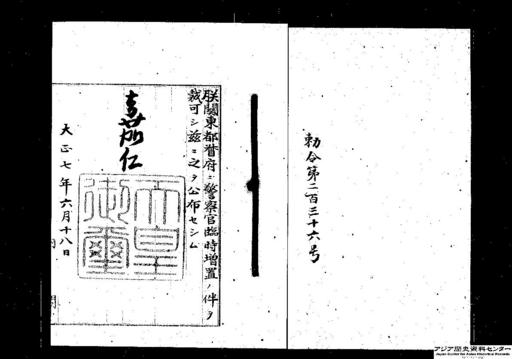 勅令第二百三十六号
朕関東都督府ニ警察官臨時増置ノ件ヲ
裁可シ茲ニ之ヲ公布セシム
嘉仁
天皇
御璽
大正七年六月十八日
アジア歴史資料センター
Japan Center for Asian Historical Records